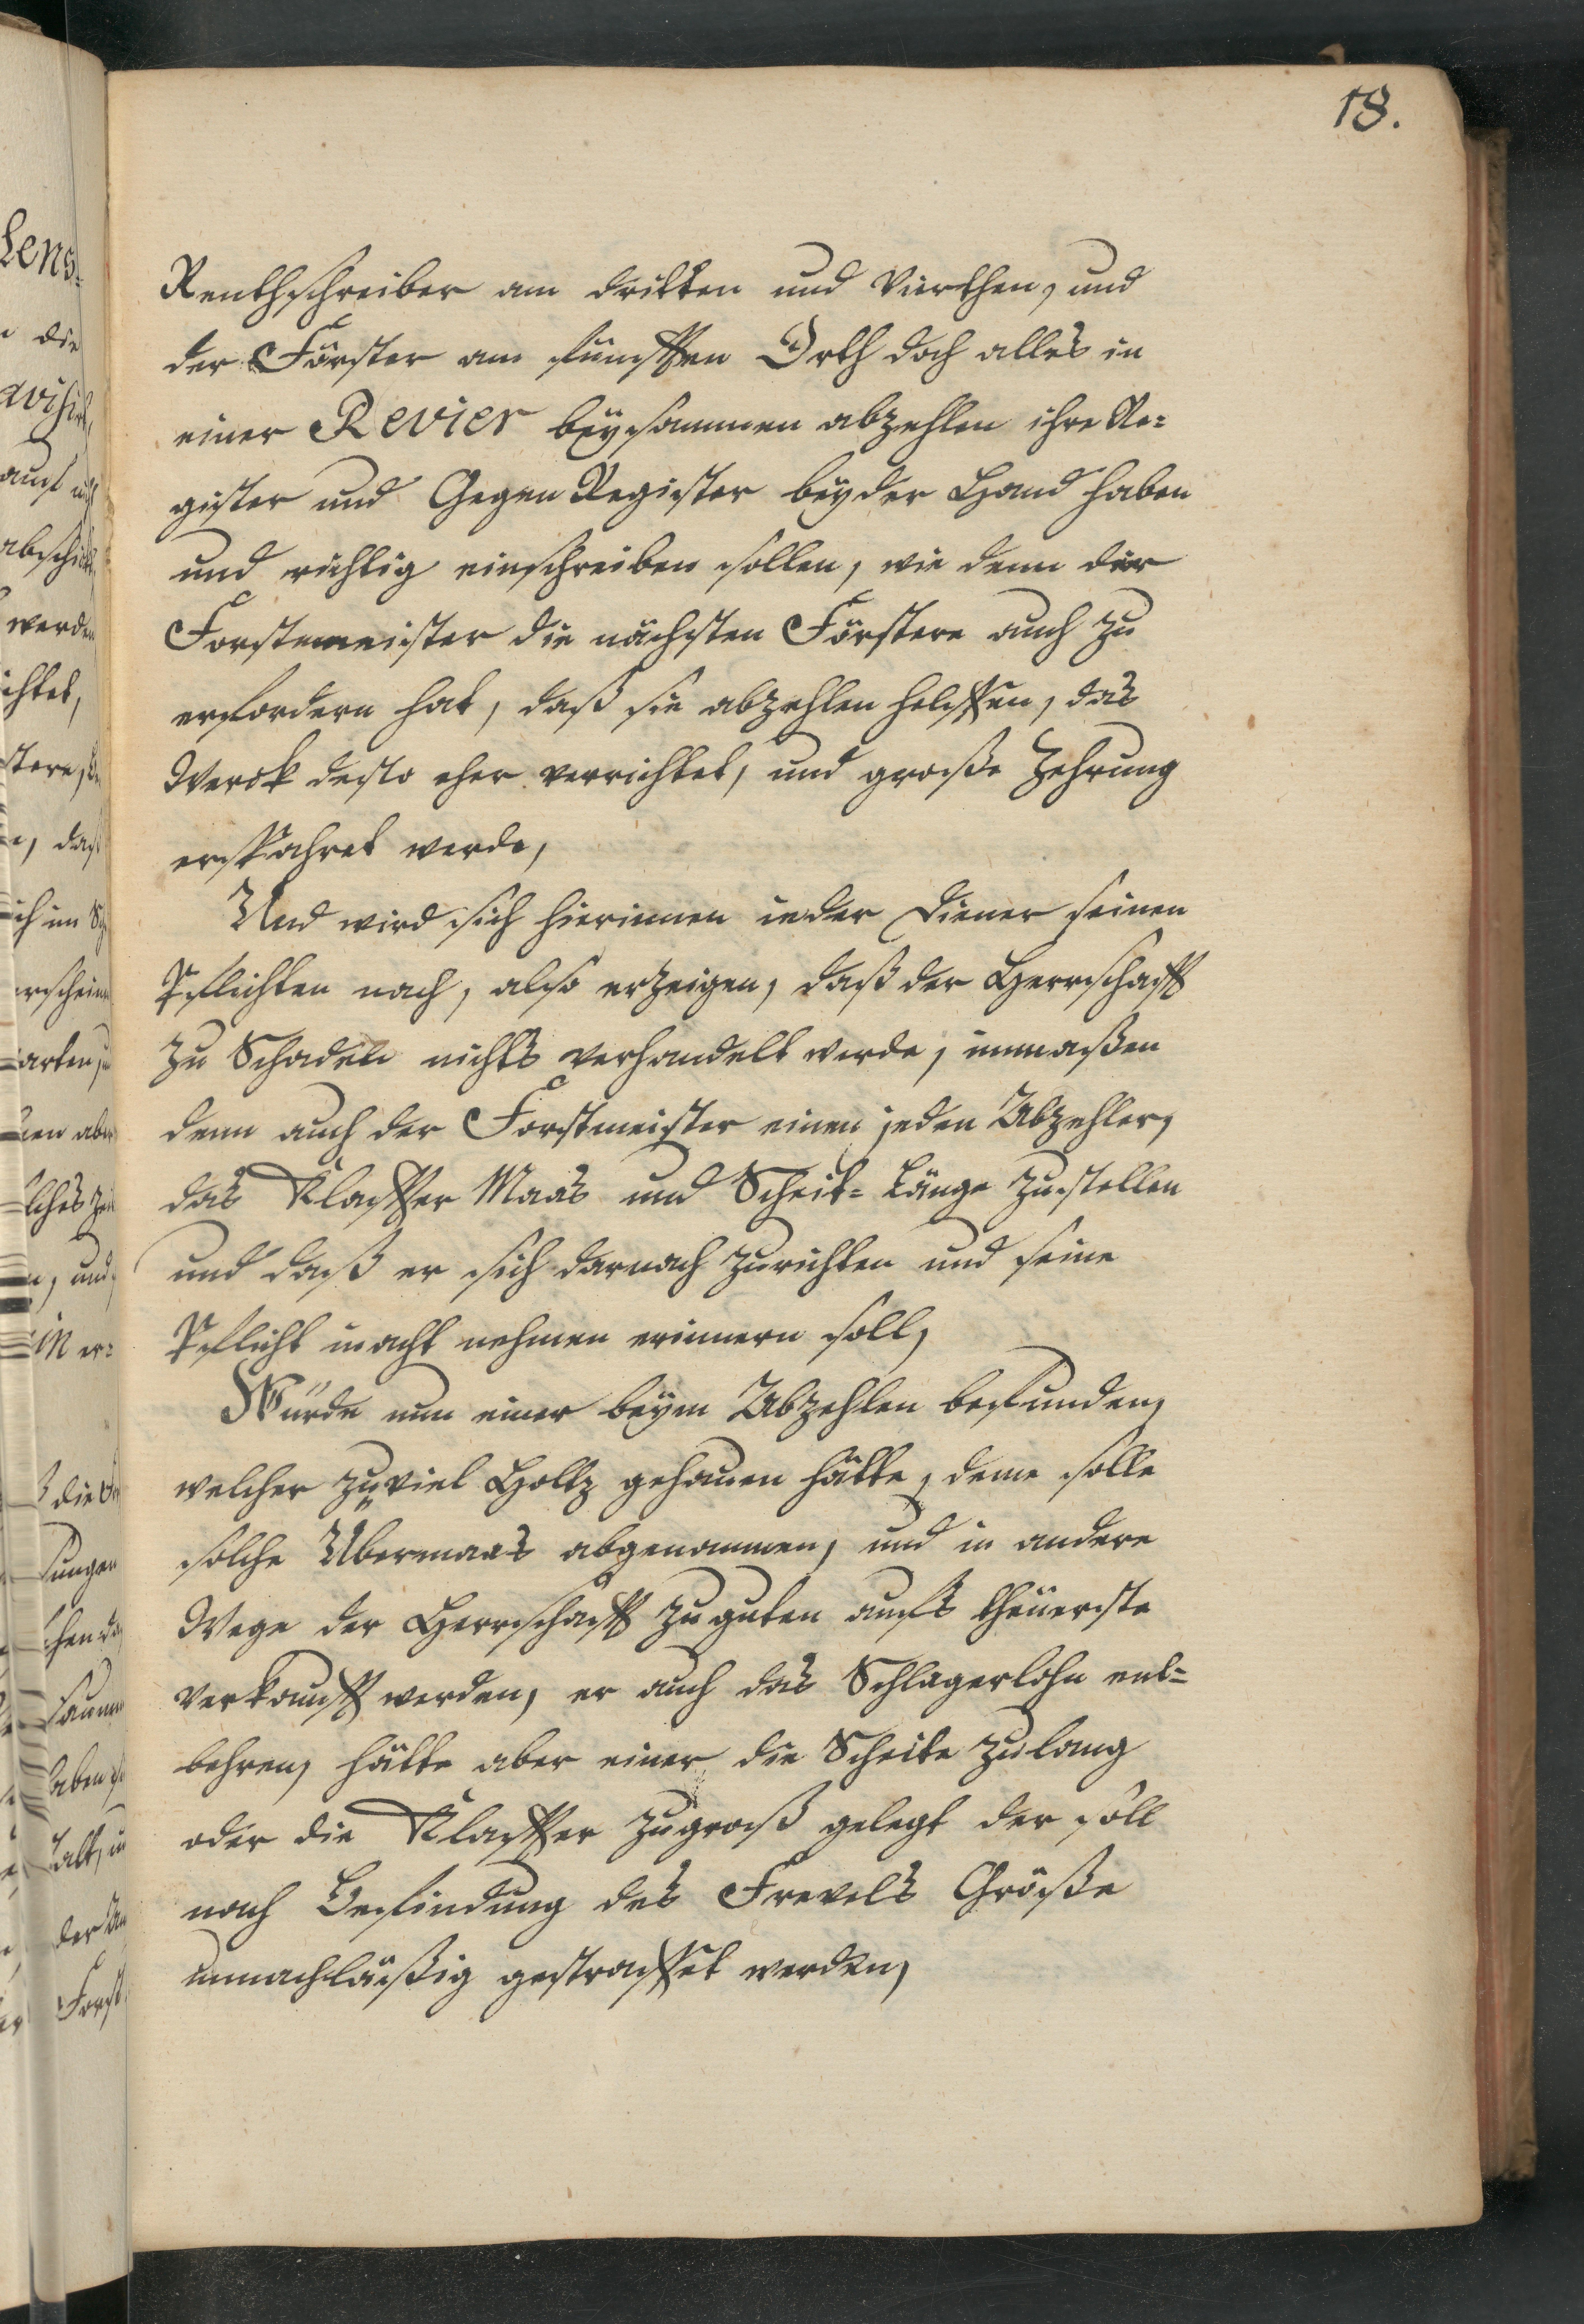 18.
Renthschreiber am dritten und Vierthen, und
der Förster am fünfften Orth doch alles in
einer Revier beysammen abzehlen ihre Re=
gister und Gegen Register bey der Hand haben
und richtig einschreiben sollen, wie denn der
Forstmeister die nächsten Förstere auch zu
erfordern hat, daß sie abzehlen helffen, das
Werck desto eher verrichtet, und große Zehrung
erspahret werde,
Und wird sich hierinnen ieder Diener seinen
Pflichten nach, also erzeigen, daß der Herrschafft
zu Schaden nichts verhandelt werde, inmaßen
denn auch der Forstmeister einen jeden Abzehler,
das Klaffter Maas und Scheit= Länge zustellen
und daß er sich darnach zurichten und seine
Pflicht inacht nehmen erinnern soll,
Würde nun einer beym Abzehlen befunden,
welcher zuviel Holtz gehauen hätte, deme solle
solche Übermaas abgenommen, und in andere
Wege der Herrschafft zuguten aufs theüerste
verkaufft werden, er auch das Schlagerlohn ent=
behren, hätte aber einer die Scheite zulang
oder die Klaffter zugroß gelegt der soll
nach Befindung des Frevels Größe
unnachläßig gestraffet werden,